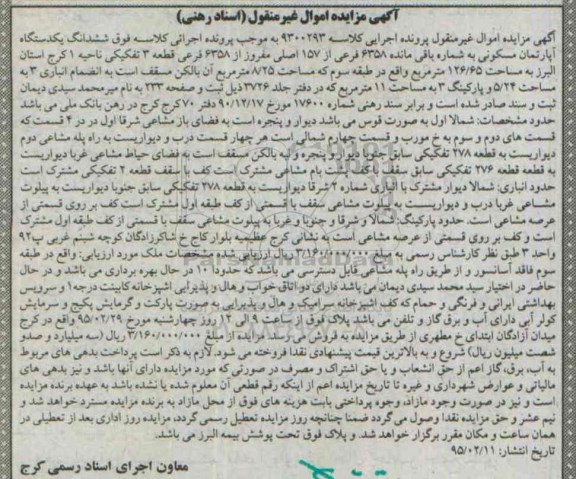 آگهی مزایده اموال غیرمنقول (اسناد رهنی)
آگهی مزایده اموال غیرمنقول پرونده اجرایی کلاسه ۹۳۰۰۲۹۳ به موجب پرونده اجرائی کلاسه فوق ششدانگ یکدستگاه
آپارتمان مسکونی به شماره باقی مانده ۶۳۵۸ فرعی از ۱۵۷ اصلی مفروز از ۶۳۵۸ فرعی قطعه ۳ تفکیکی ناحیه ۱ کرج استان
البرز به مساحت ۱۲۶/۶۵ مترمربع واقع در طبقه سوم که مساحت ۸/۲۵ مترمربع آن بالکن مسقف است به انضمام انباری ۳ به
مساحت ۵/۲۴ و پارکینگ ۳ به مساحت ۱۱ مترمربع که در دفتر جلد ۳۷۲۶ ذیل ثبت و صفحه ۲۳۳ به نام میرمحمد سیدی دیمان
ثبت و سند صادر شده است و برابر سند رهنی شماره ۱۷۶۰۰ مورخ ۹۰/۱۲/۱۷ دفتر ۷۰ کرج کرج در رهن بانک ملی می باشد
حدود مشخصات: شمالا اول به صورت قوس می باشد دیوار و پنجره است به فضای باز مشاعی شرقا اول در در ۴ قسمت که
قسمت های دوم و سوم به خ مورب و قسمت چهارم شمالی است هر چهار قسمت درب و دیواریست به راه پله مشاعی دوم
دیواریست به قطعه ۲۷۸ تفکیکی سابق جنوبا دیوار و پنجره و لبه بالکن مسقف است به فضای حیاط مشاعی غربا دیواریست
به قطعه قطعه ۲۷۶ تفکیکی سابق سقف است بام مشاعی مشترک است کف با سقف قطعه ۲ تفکیکی مشترک است
حدود انباری: شمالا دیوار مشترک با انباری شماره ۲ شرقا دیواریست به قطعه ۲۷۸ تفکیکی سابق جنوبا دیواریست به پیلوت
مشاعی غربا درب و دیواریست به پیلوت مشاعی سقف با قسمتی از کف طبقه اول مشترک است کف بر روی قسمتی از
عرصه مشاعی است. حدود پارکینگ: شمالا و شرقا و جنوبا و غربا به پیلوت مشاعی سقف با قسمتی از کف طبقه اول مشترک
است و کف بر روی قسمتی از عرصه مشاعی است به نشانی کرج عظیمیه بلوار کاج خ شاکرزادگان کوچه شبنم غربی پ ۹۲
واحد ۳ طبق نظر کارشناس رسمی به مبلغ ۳/۱۶۰/۰۰۰/۰۰۰ ریال ارزیابی شده مشخصات ملک مورد ارزیابی: واقع در طبقه
سوم فاقد آسانسور و از طریق راه پله مشاعی قابل دسترسی می باشد که حدودا ۱۰ در حال بهره برداری می باشد و در حال
حاضر در اختیار سید محمد سیدی دیمان می باشد دارای دو اتاق خواب و هال و پذیرایی آشپزخانه کابینت درجه ۱ و سرویس
بهداشتی ایرانی و فرنگی و حمام که کف آشپزخانه سرامیک و هال و پذیرایی به صورت پارکت و گرمایش پکیج و سرمایش
کولر آبی دارای آب و برق گاز و تلفن می باشد پلاک فوق از ساعت ۹ الی ۱۲ روز چهارشنبه مورخ ۹۵/۰۲/۲۹ واقع در کرج
میدان آزادگان ابتدای خ مطهری از طریق مزایده به فروش می رسد. مزایده از مبلغ ۳/۱۶۰/۰۰۰/۰۰۰ ریال (سه میلیارد و صدو
شصت میلیون ریال) شروع و به بالاترین قیمت پیشنهادی نقدا فروخته می شود. لازم به ذکر است پرداخت بدهی های مربوط
به آب، برق، گاز اعم از حق انشعاب و یا حق اشتراک و مصرف در صورتی که مورد مزایده دارای آنها باشد و نیز بدهی های
مالیاتی و عوارض شهرداری و غیره تا تاریخ مزایده اعم از اینکه رقم قطعی آن معلوم شده یا نشده باشد به عهده برنده مزایده
است و نیز در صورت وجود مازاد، وجوه پرداختی بابت هزینه های فوق از محل مازاد به برنده مزایده مسترد خواهد شد و
نیم عشر و حق مزایده نقدا وصول می گردد ضمنا چنانچه روز مزایده تعطیل رسمی گردد، مزایده روز اداری بعد از تعطیلی در
همان ساعت و مکان مقرر برگزار خواهد شد. و پلاک فوق تحت پوشش بیمه البرز می باشد.
تاریخ انتشار: ۹۵/۰۲/۱۱
معاون اجرای اسناد رسمی کرج